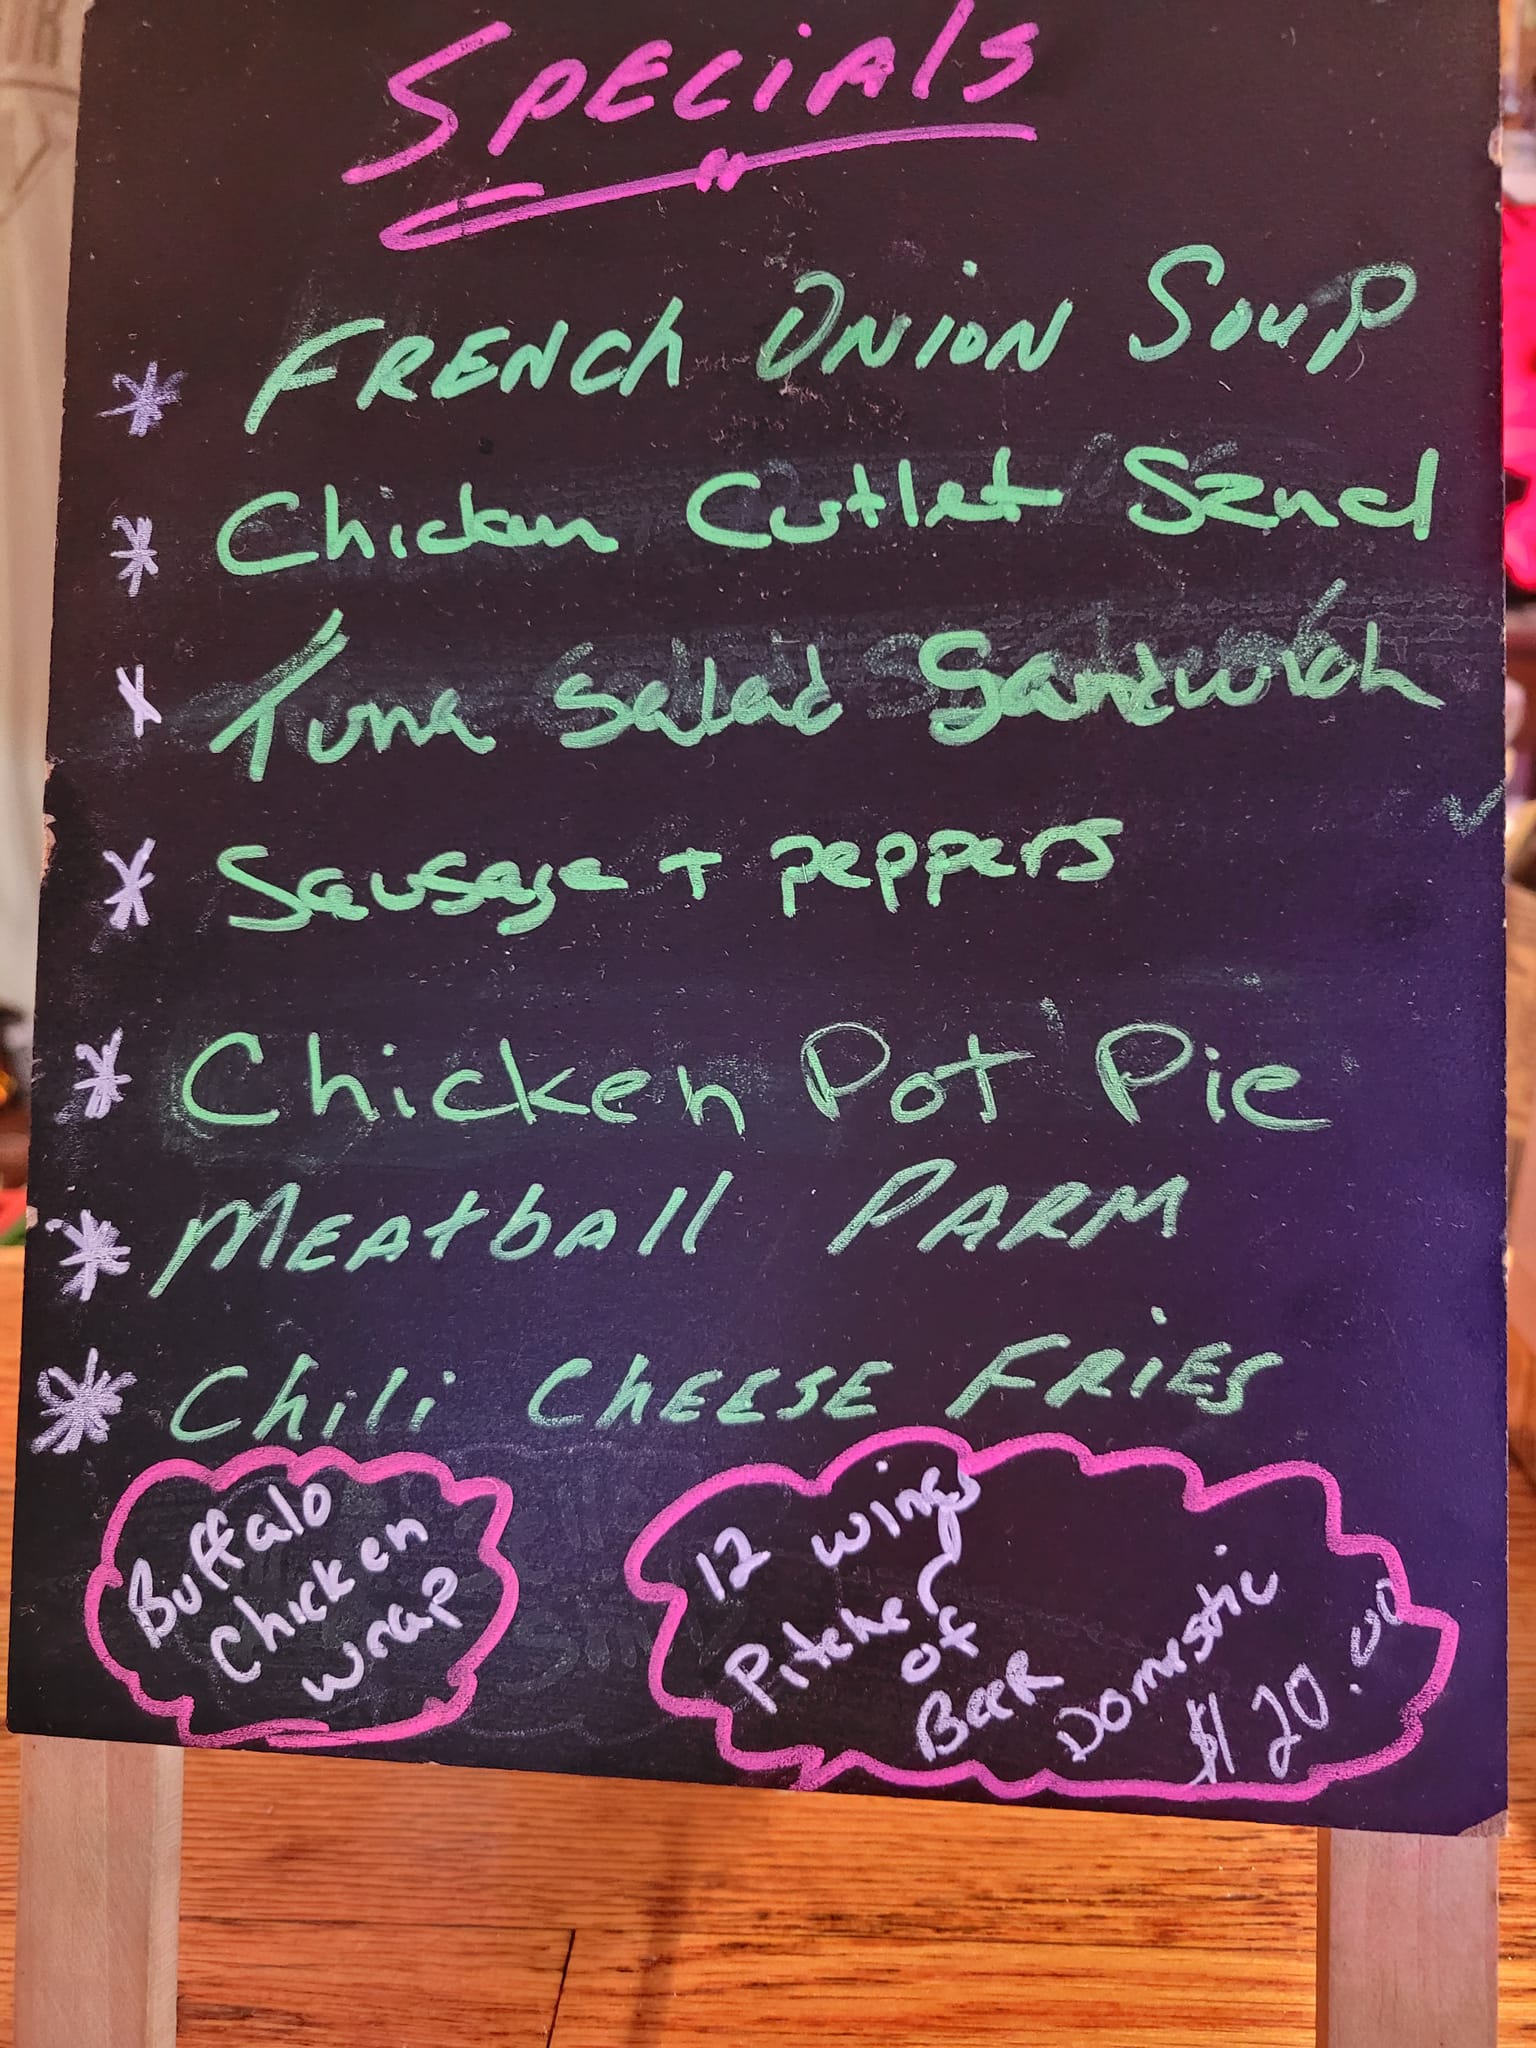 Specials
* French Onion Soup
* Chicken Cutlet Sand
* Tuna Salad Sandwich
* Sausage + peppers
* Chicken Pot Pie
* Meatball Parm
* Chili Cheese Fries
Buffalo
Chicken
Wrap
12 wings
Pitcher
of
Beer
Domestic
$20.00